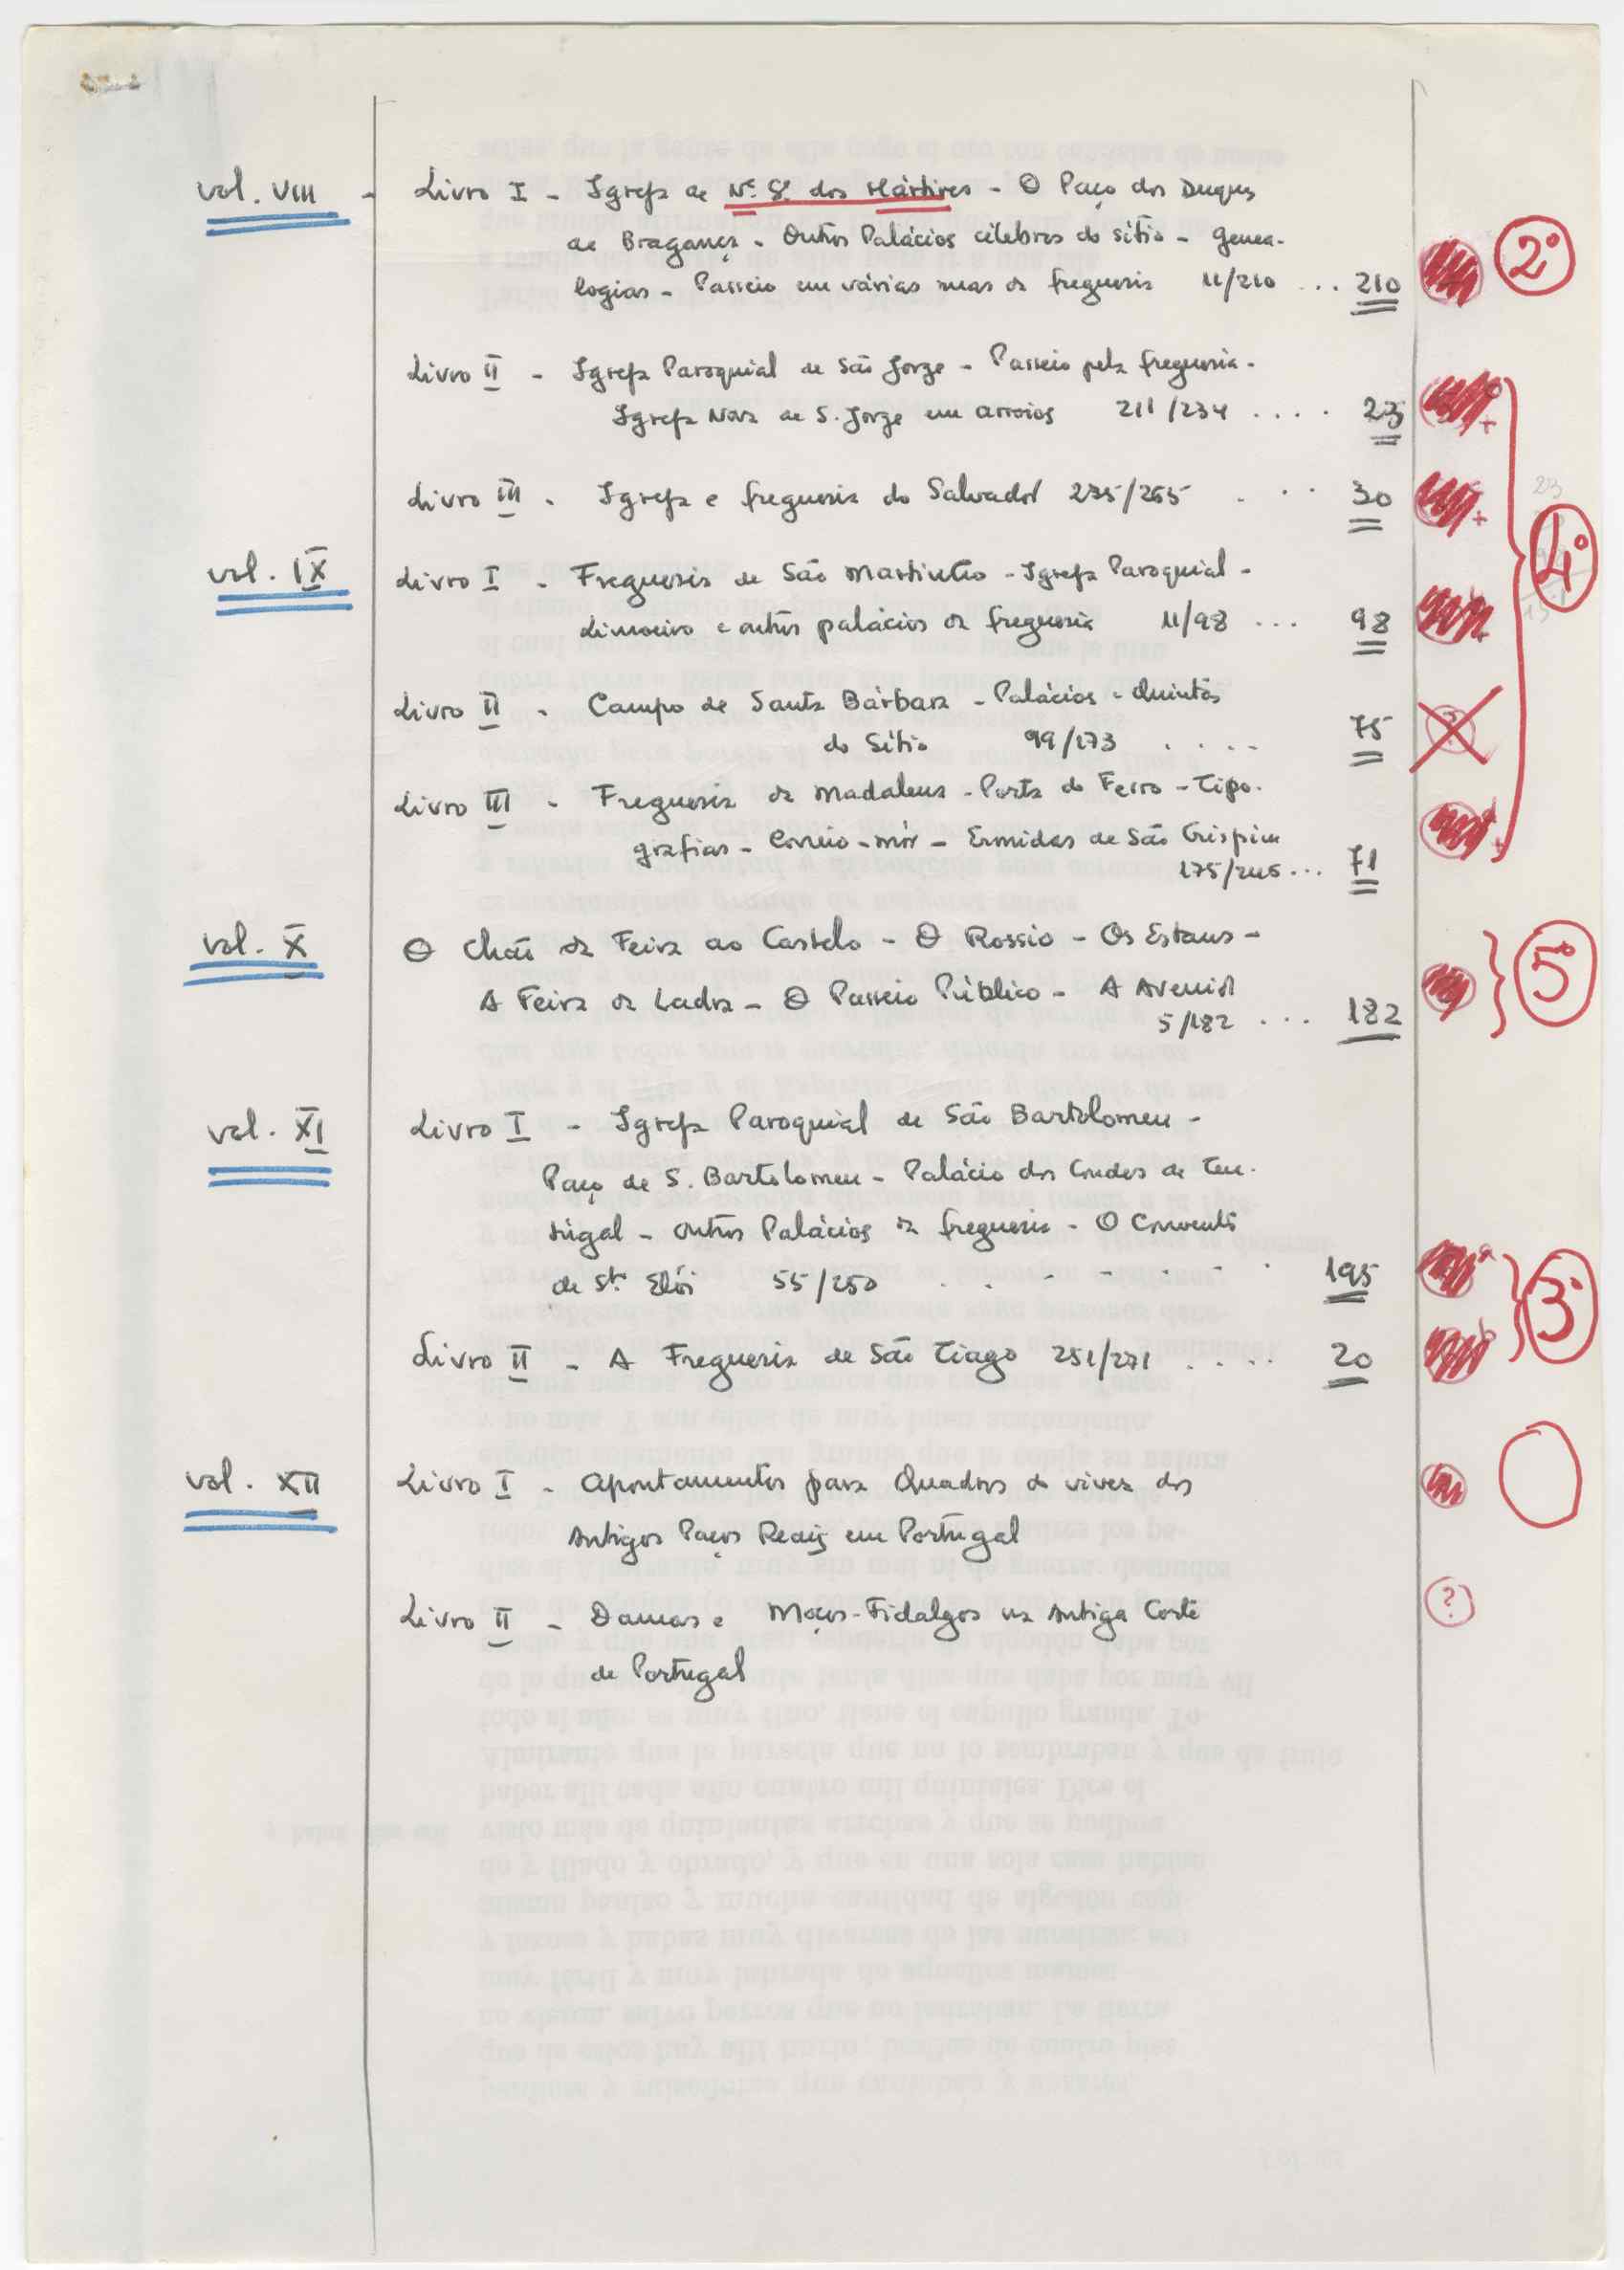 vol. VIII - Livro I - Igreja de Nª Sª dos Mártires - O Paço dos Duques
de Bragança - Outros Palácios célebres do sítio - Genea-
logias - Passeio em várias ruas da freguesia 11/210 ... 210
2º
Livro II - Igreja Paroquial de São Jorge - Passeio pela freguesia -
Igreja Nova de S. Jorge em Arroios 211/234 .... 23
Livro III - Igreja e freguesia do Salvador 235/265 ... 30
4º
vol. IX Livro I - Freguesia de São Martinho - Igreja Paroquial -
Limoeiro e outros palácios da freguesia 11/98 ... 98
Livro II - Campo de Santa Bárbara - Palácios - Quintas
do Sítio 99/173 .... 75
Livro III - Freguesia da Madalena - Porta do Ferro - Tipo-
grafias - Correio-mór - Ermidas de São Crispim
175/245 ... 71
vol. X O Chão da Feira ao Castelo - O Rossio - Os Estaus -
A Feira da Ladra - O Passeio Público - A Avenida
5/182 ... 182
5º
vol. XI Livro I - Igreja Paroquial de São Bartolomeu -
Paço de S. Bartolomeu - Palácio dos Condes de Ten-
túgal - Outros Palácios da freguesia - O Convento
de Stº Elói 55/250 . . - - - - . 195
3º
Livro II - A Freguesia de São Tiago 251/271 .... 20
vol. XII Livro I - Apontamentos para Quadros do viver dos
Antigos Paços Reais em Portugal
Livro II - Damas e Moços-Fidalgos na Antiga Corte
de Portugal
?